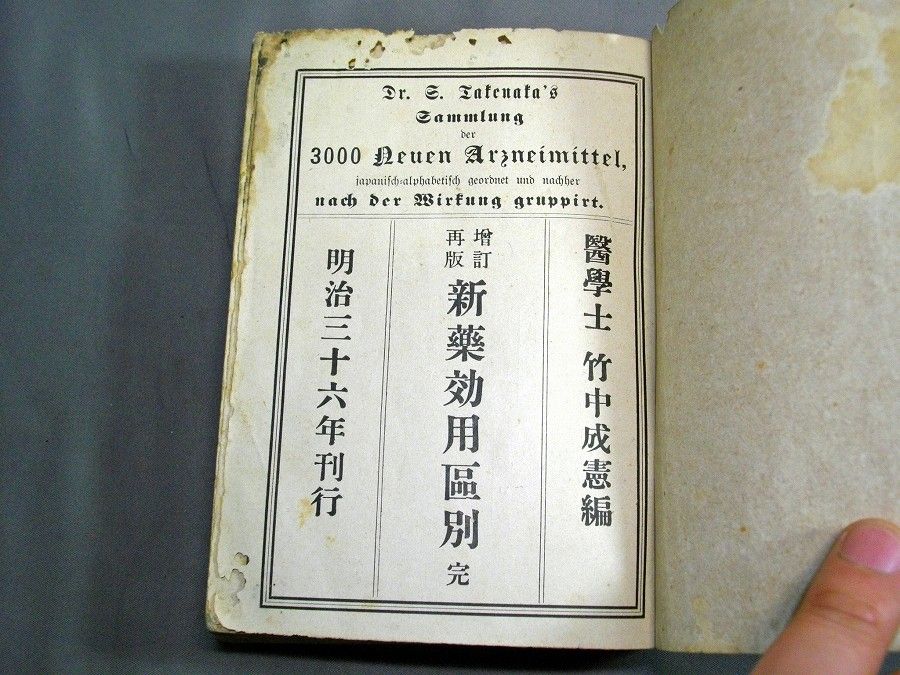 Dr. S. Takenaka's
Sammlung
der
3000 Neuen Arzneimittel,
japanisch-alphabetisch geordnet und nachher
nach der Wirkung gruppirt.
醫學士 竹中成憲編
增訂
再版
新藥効用區別 完
明治三十六年刊行